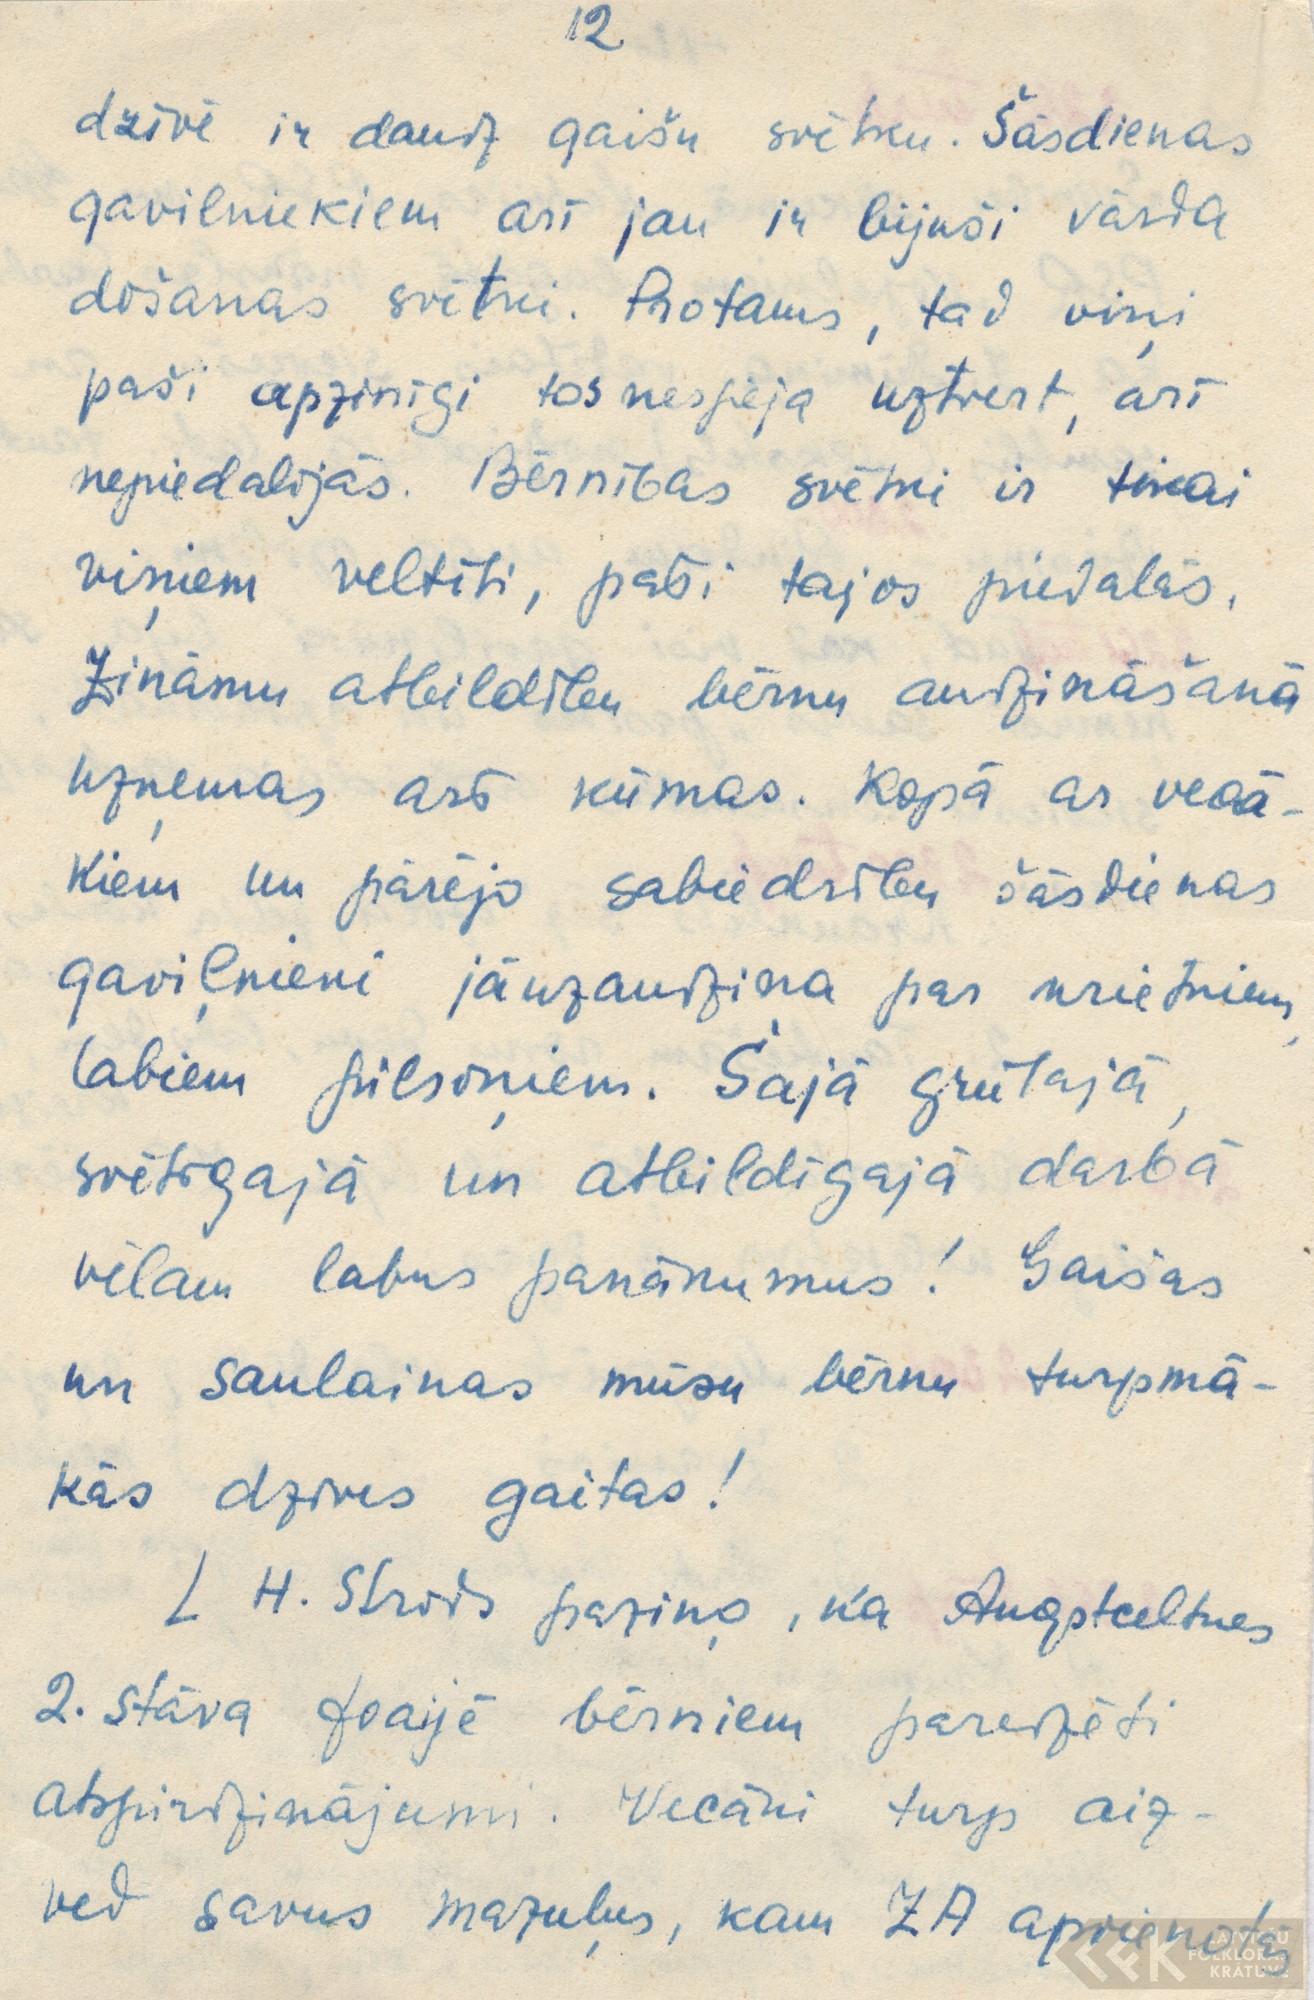 12
dzīvē ir daudz gaišu svētku. Šāsdienas
gavilniekiem arī jau ir bijuši vārda
došanas svētki. Protams, tad viņi
paši apzinīgi tos nespēja uztvert, arī
nepiedalījās. Bērnības svētki ir tikai
viņiem veltīti, paši tajos piedalās.
Zināmu atbildību bērnu audzināšanā
uzņemas arī kūmas. Kopā ar vecā-
kiem un pārējo sabiedrību šāsdienas
gaviļnieki jāuzaudzina par krietniem,
labiem pilsoņiem. Šajā grūtajā,
svētīgajā un atbildīgajā darbā
vēlam labus panākumus! Gaišas
un saulainas mūsu bērnu turpmā-
kās dzīves gaitas!
[ H. Strods paziņo, ka Augstceltnes
2. stāva foaijē bērniem paredzēti
atspirdzinājumi. Vecāki turp aiz-
ved savus mazuļus, kam ZA apvienotās
LATVIEŠU
FOLKLORAS
KRĀTUVE